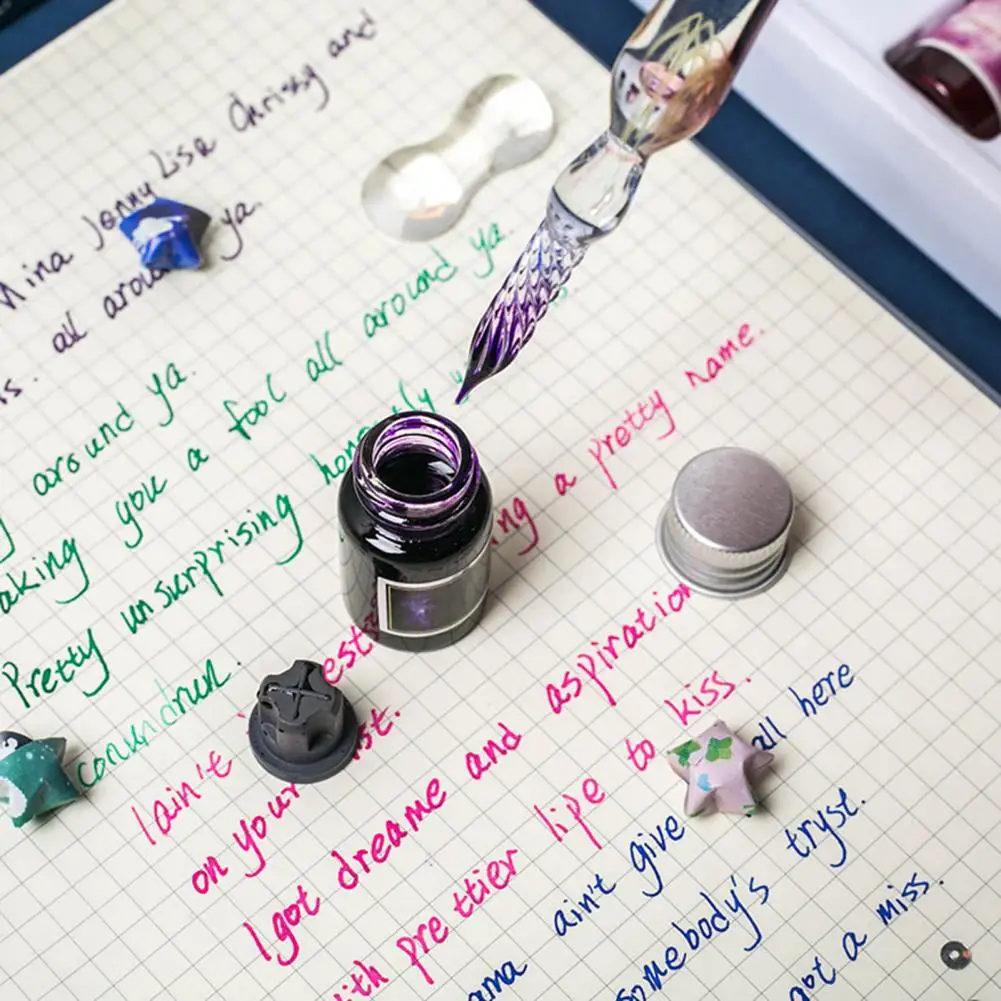 Nina Jenny Lisa Chrissy and
all around ya.
around ya.
making you a fool all around ya
Pretty unsurprising honestly
conundrum.
I ain't
a pretty name.
on your list.
I got dreame and aspiration
with prettier lipe to kiss.
ain't give all here
somebody's tryst.
got a miss.